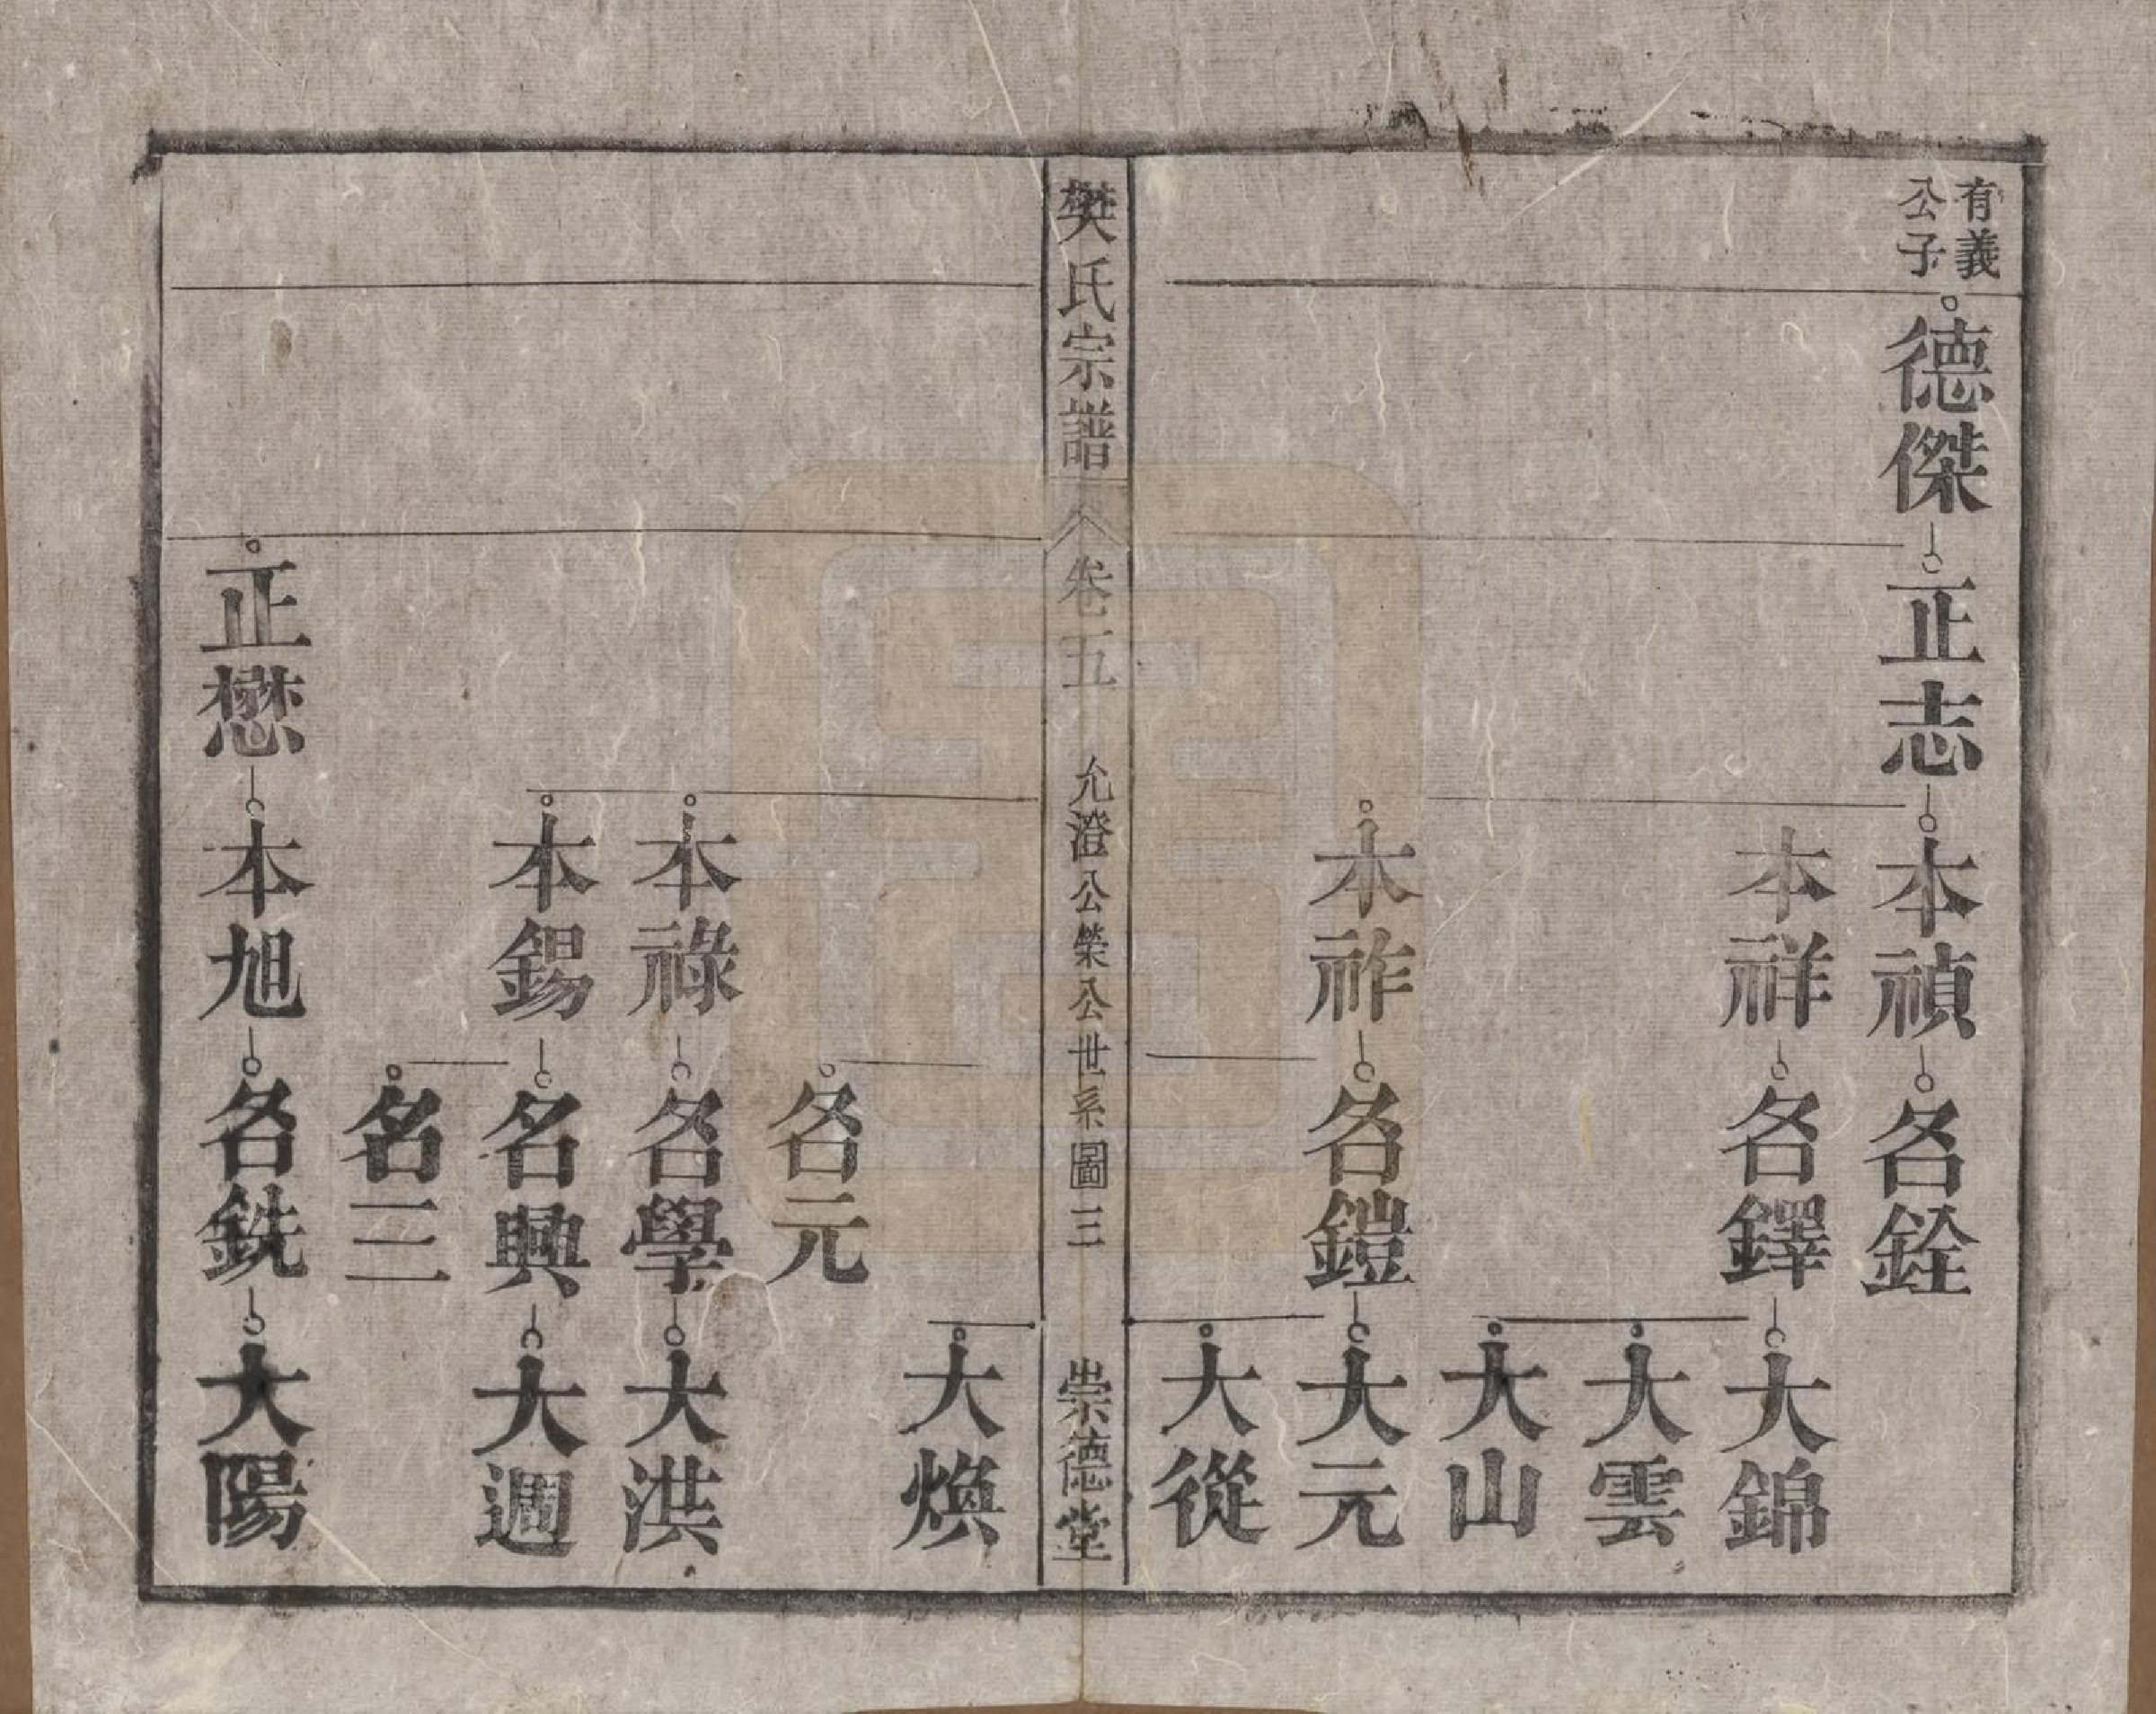 有義
公子
德傑
正志
本禎
名銓
本祥
名鐸
大錦
大雲
大山
本祚
名鎧
大元
大從
樊氏宗譜
卷五
允澄公榮公世系圖
三
崇德堂
大煥
名元
本祿
名學
大洪
本錫
名興
大週
名三
正懋
本旭
名銑
大陽